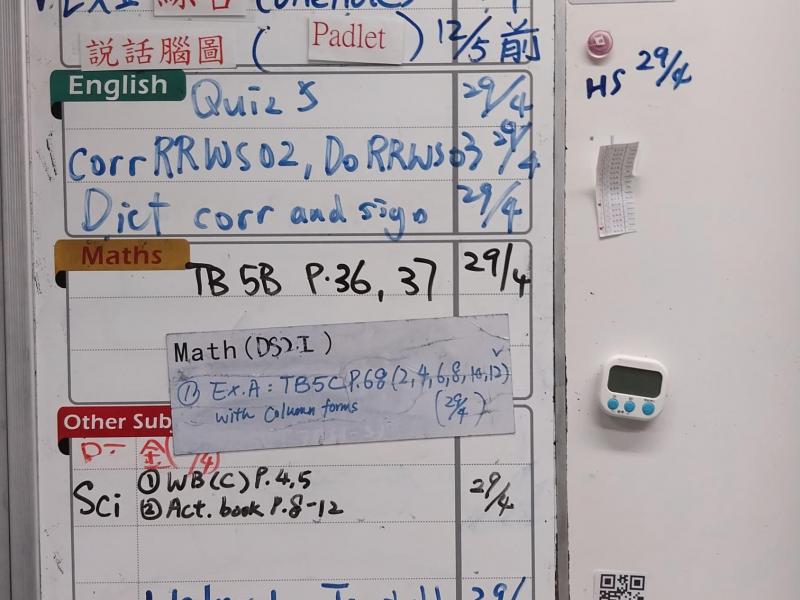 綜合
說話腦圖 ( Padlet ) 12/5 前
English
Quiz 5 29/4
HS 29/4
Corr RRWS02, Do RRWS03 29/4
Dict corr and sign 29/4
Maths
TB 5B P.36, 37 29/4
Math (DS2.I)
① Ex.A: TB5C P.68 (2, 4, 6, 8, 10, 12)
with column forms (29/4)
Other Sub
Sci ① WB(C) P.4,5 29/4
② Act. book P.8-12
29/